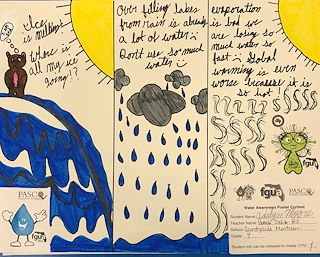 I can
Ice is
melting!
Where is
all my ice
going!?
Over filling lakes
from rain is already
a lot of water
Don't use so much
water
evaporation
is bad we
are losing so
much water so
fast Global
warming is even
worse because it is
so hot
PASCO
fgua
PASCO
fgua
Water Awareness Poster Contest
Student Name:
Teacher Name:
School: Countryside Montessori
Grade: 4
Student info can be released to media (Y/N) Y